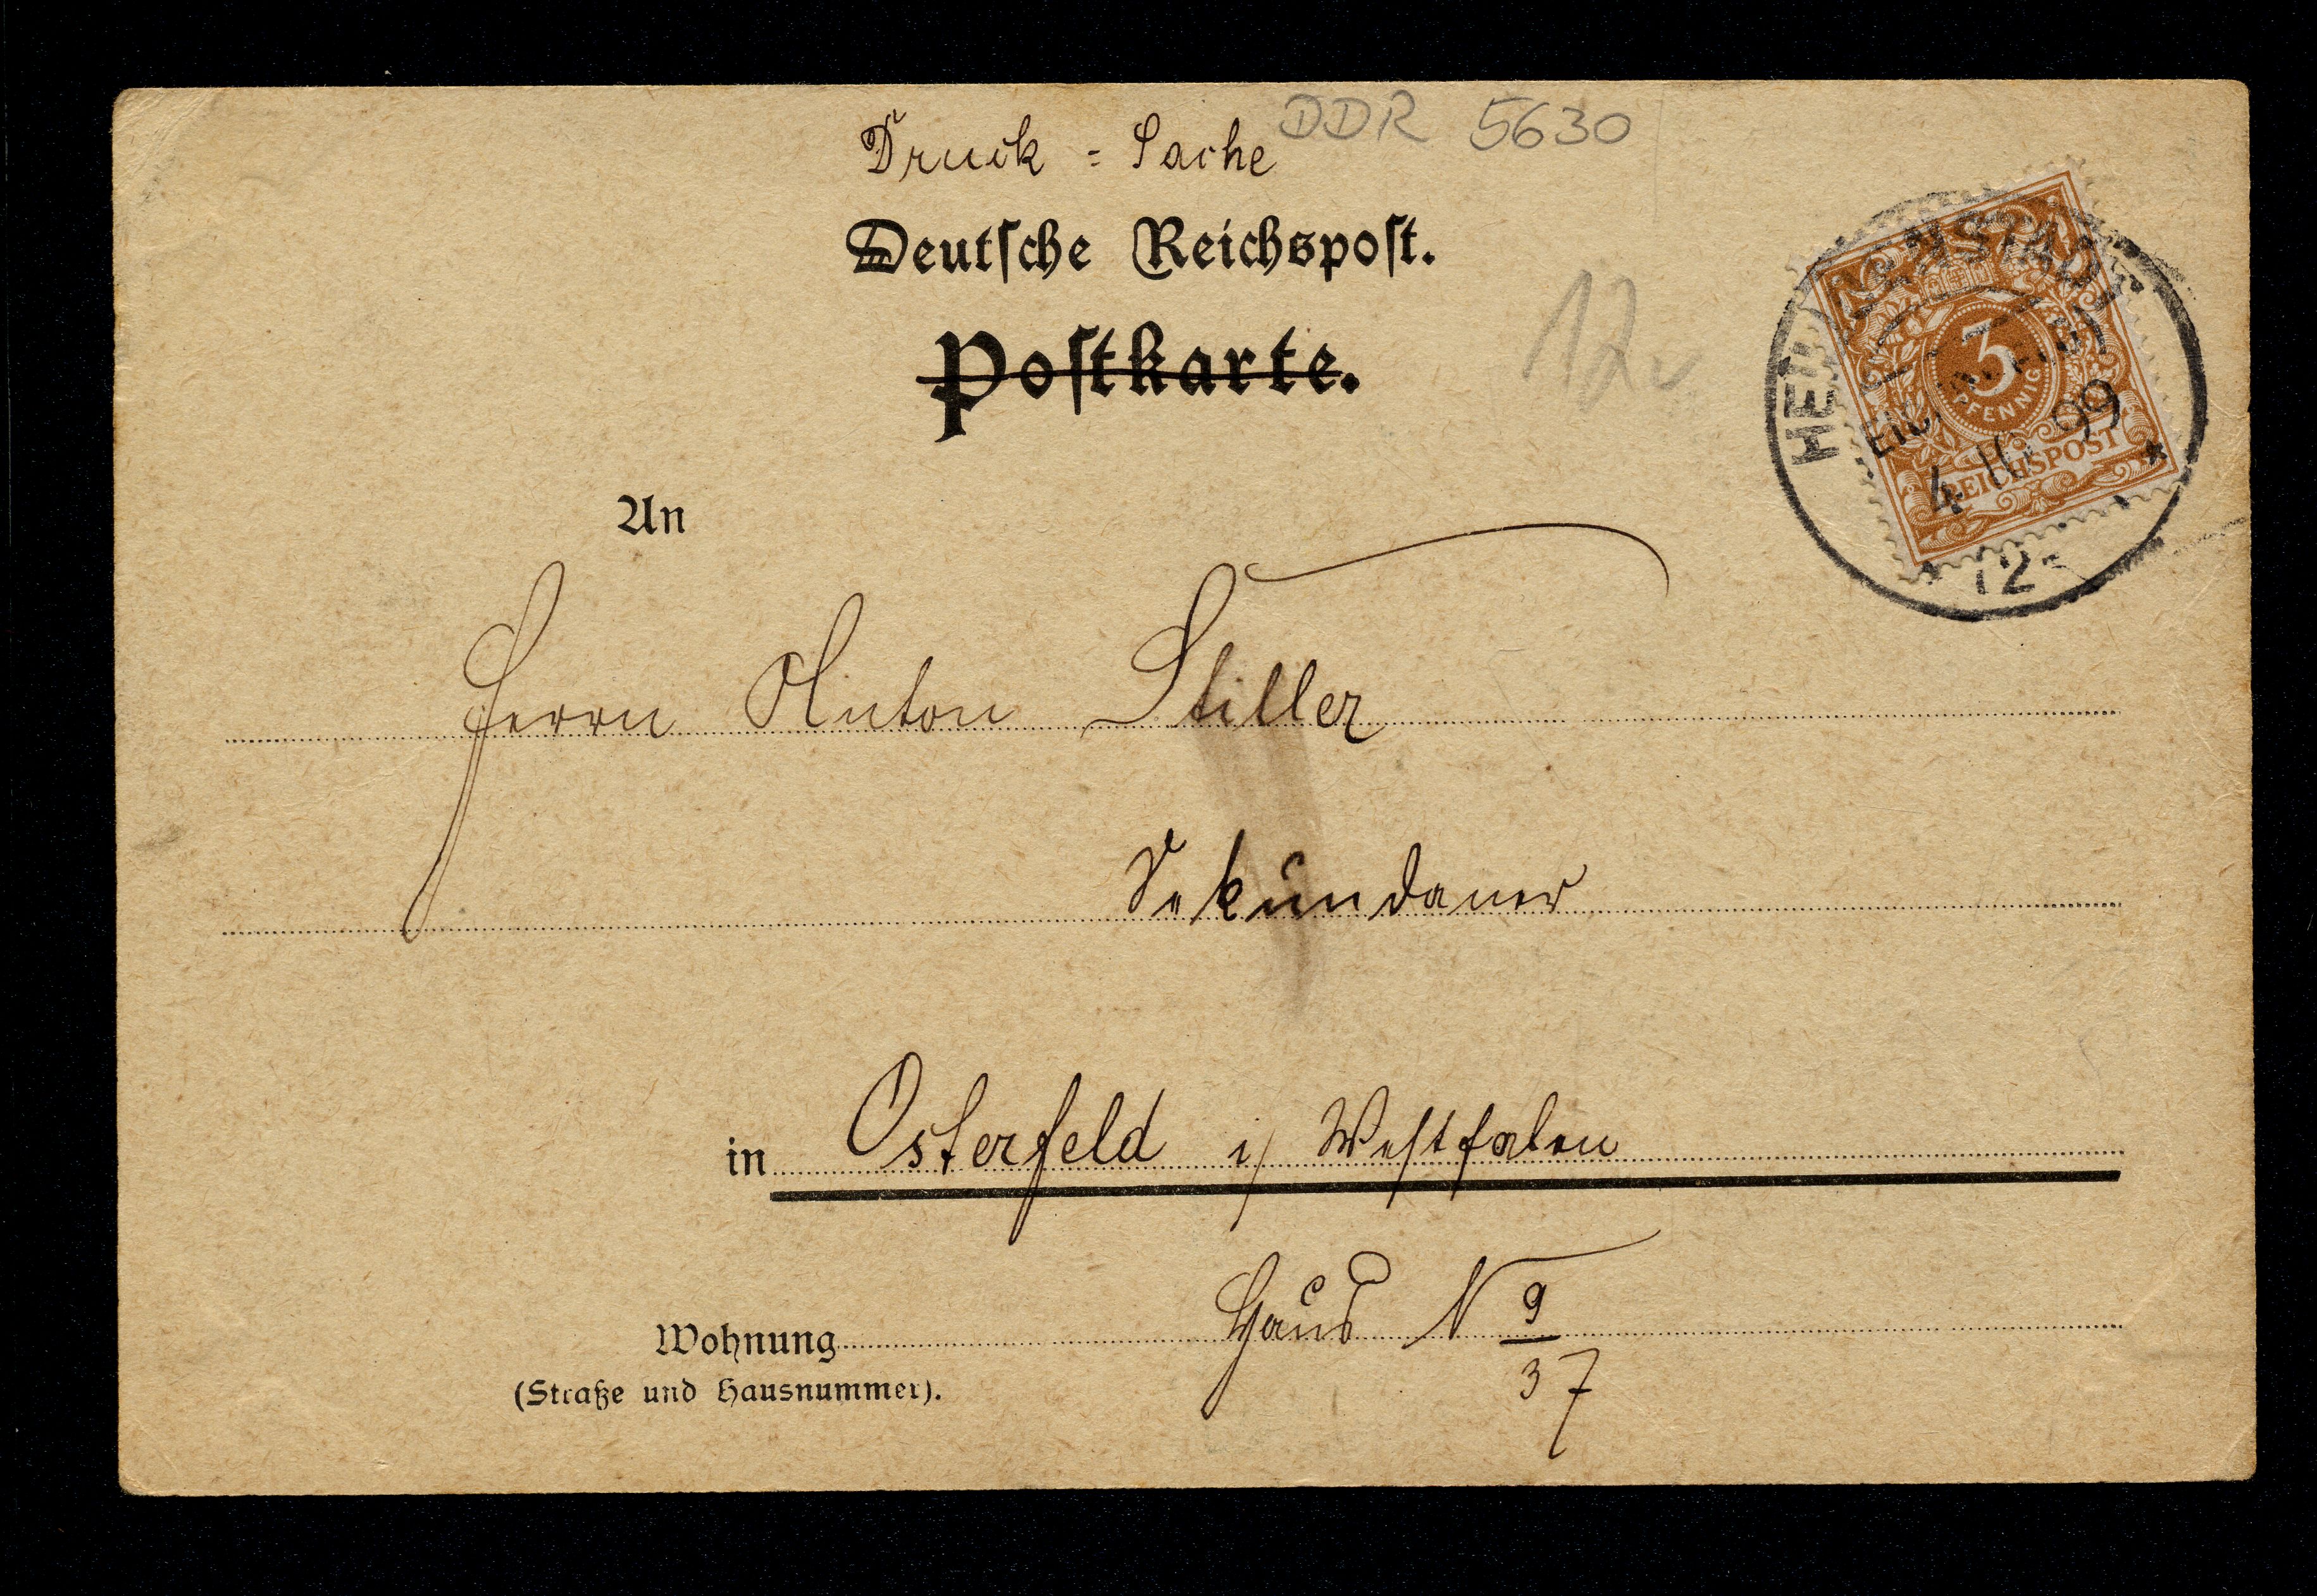 DDR 5630
Druck = Sache
Deutsche Reichspost.
Postkarte.
12
3
PFENNIG
REICHSPOST
4 10 99
12-
An
Herrn Anton Stiller
Sekundaner
in Osterfeld i/ Westfalen
Wohnung Haus N 9/37
(Straße und Hausnummer).